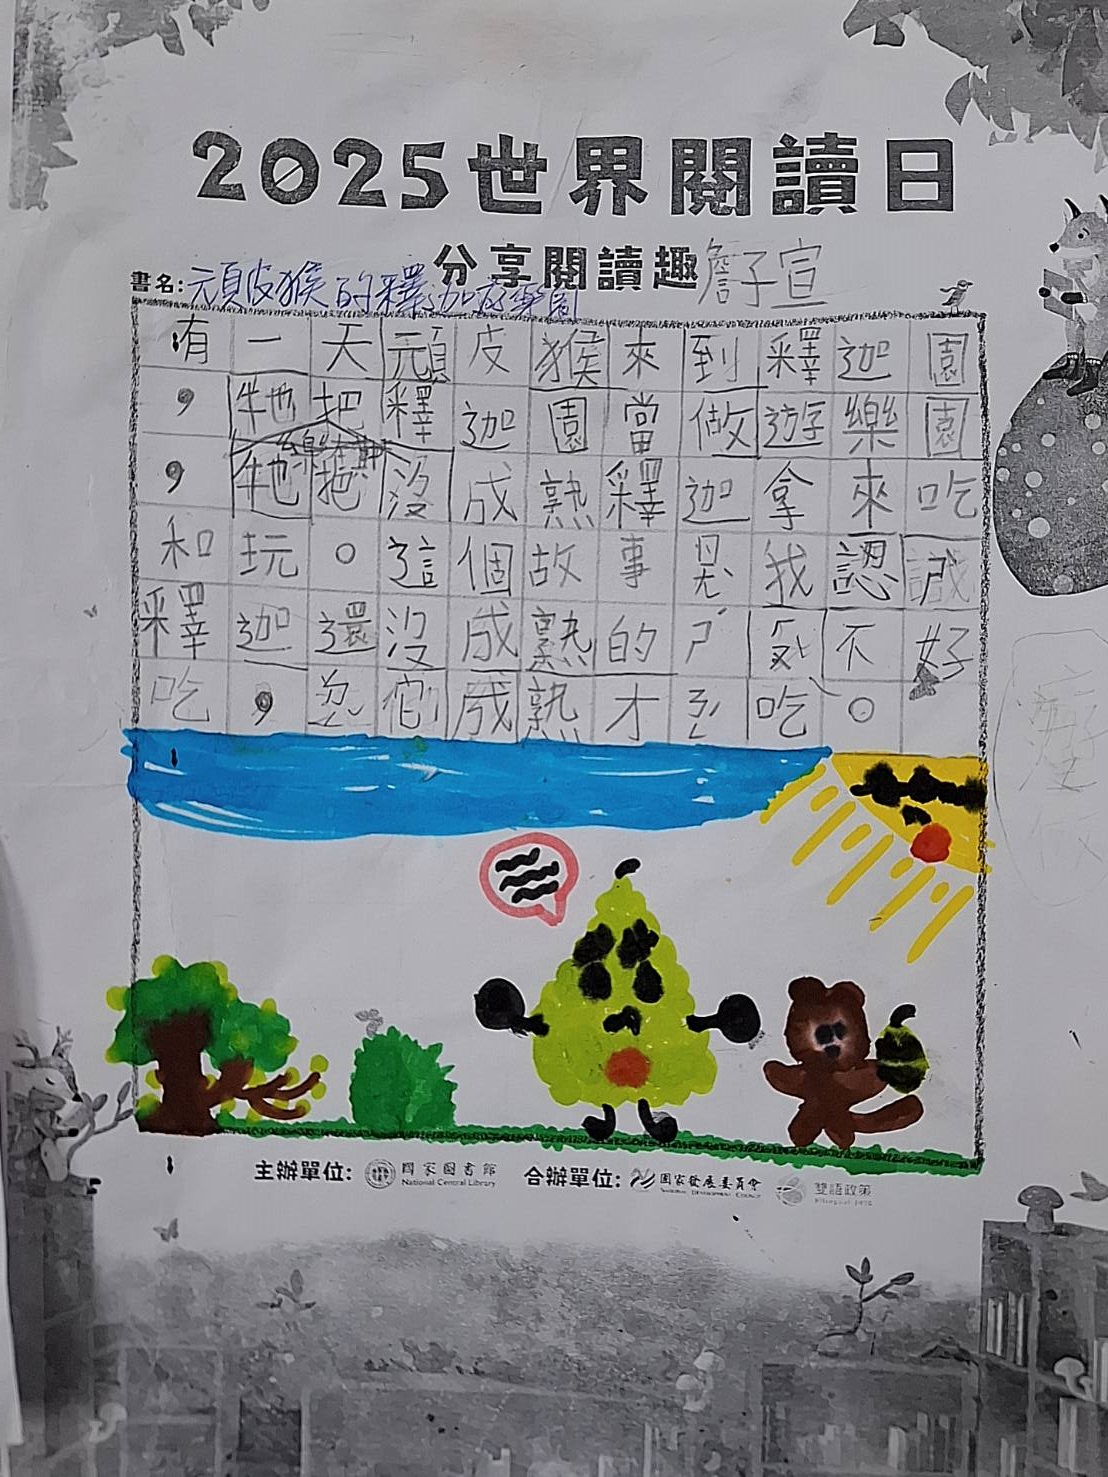 2025世界閱讀日
分享閱讀趣
詹子宣
書名:頑皮猴的釋迦遊樂園
有一天頑皮猴來到釋迦園
,牠把釋迦園當做遊樂園
,牠把沒成熟釋迦拿來吃
和玩。這個故事ㄖㄤˋ我認識
釋迦還沒成熟的ㄕˊ候不好
吃,ㄉㄥˇ它成熟才ㄎㄜˇ吃。
主辦單位: 國家圖書館 National Central Library 合辦單位: 國家發展委員會 National Development Council 雙語政策